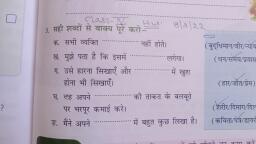 Class-V H.W 8/3/22
3. सही शब्दों से वाक्य पूरे करो-
क. सभी व्यक्ति ............ नहीं होते। (बुद्धिमान/वीर/
ख. मुझे पता है कि इसमें ............ लगेगा। (धन/समय/
ग. उसे हारना सिखाएँ और ............ में खुश होना भी सिखाएँ। (हार/जीत/प्रेम)
घ. वह अपने ............ की ताकत के बलबूते पर भरपूर कमाई करे। (शरीर/दिमाग/
ङ. मैंने अपने ............ में बहुत कुछ लिखा है। (कविता/